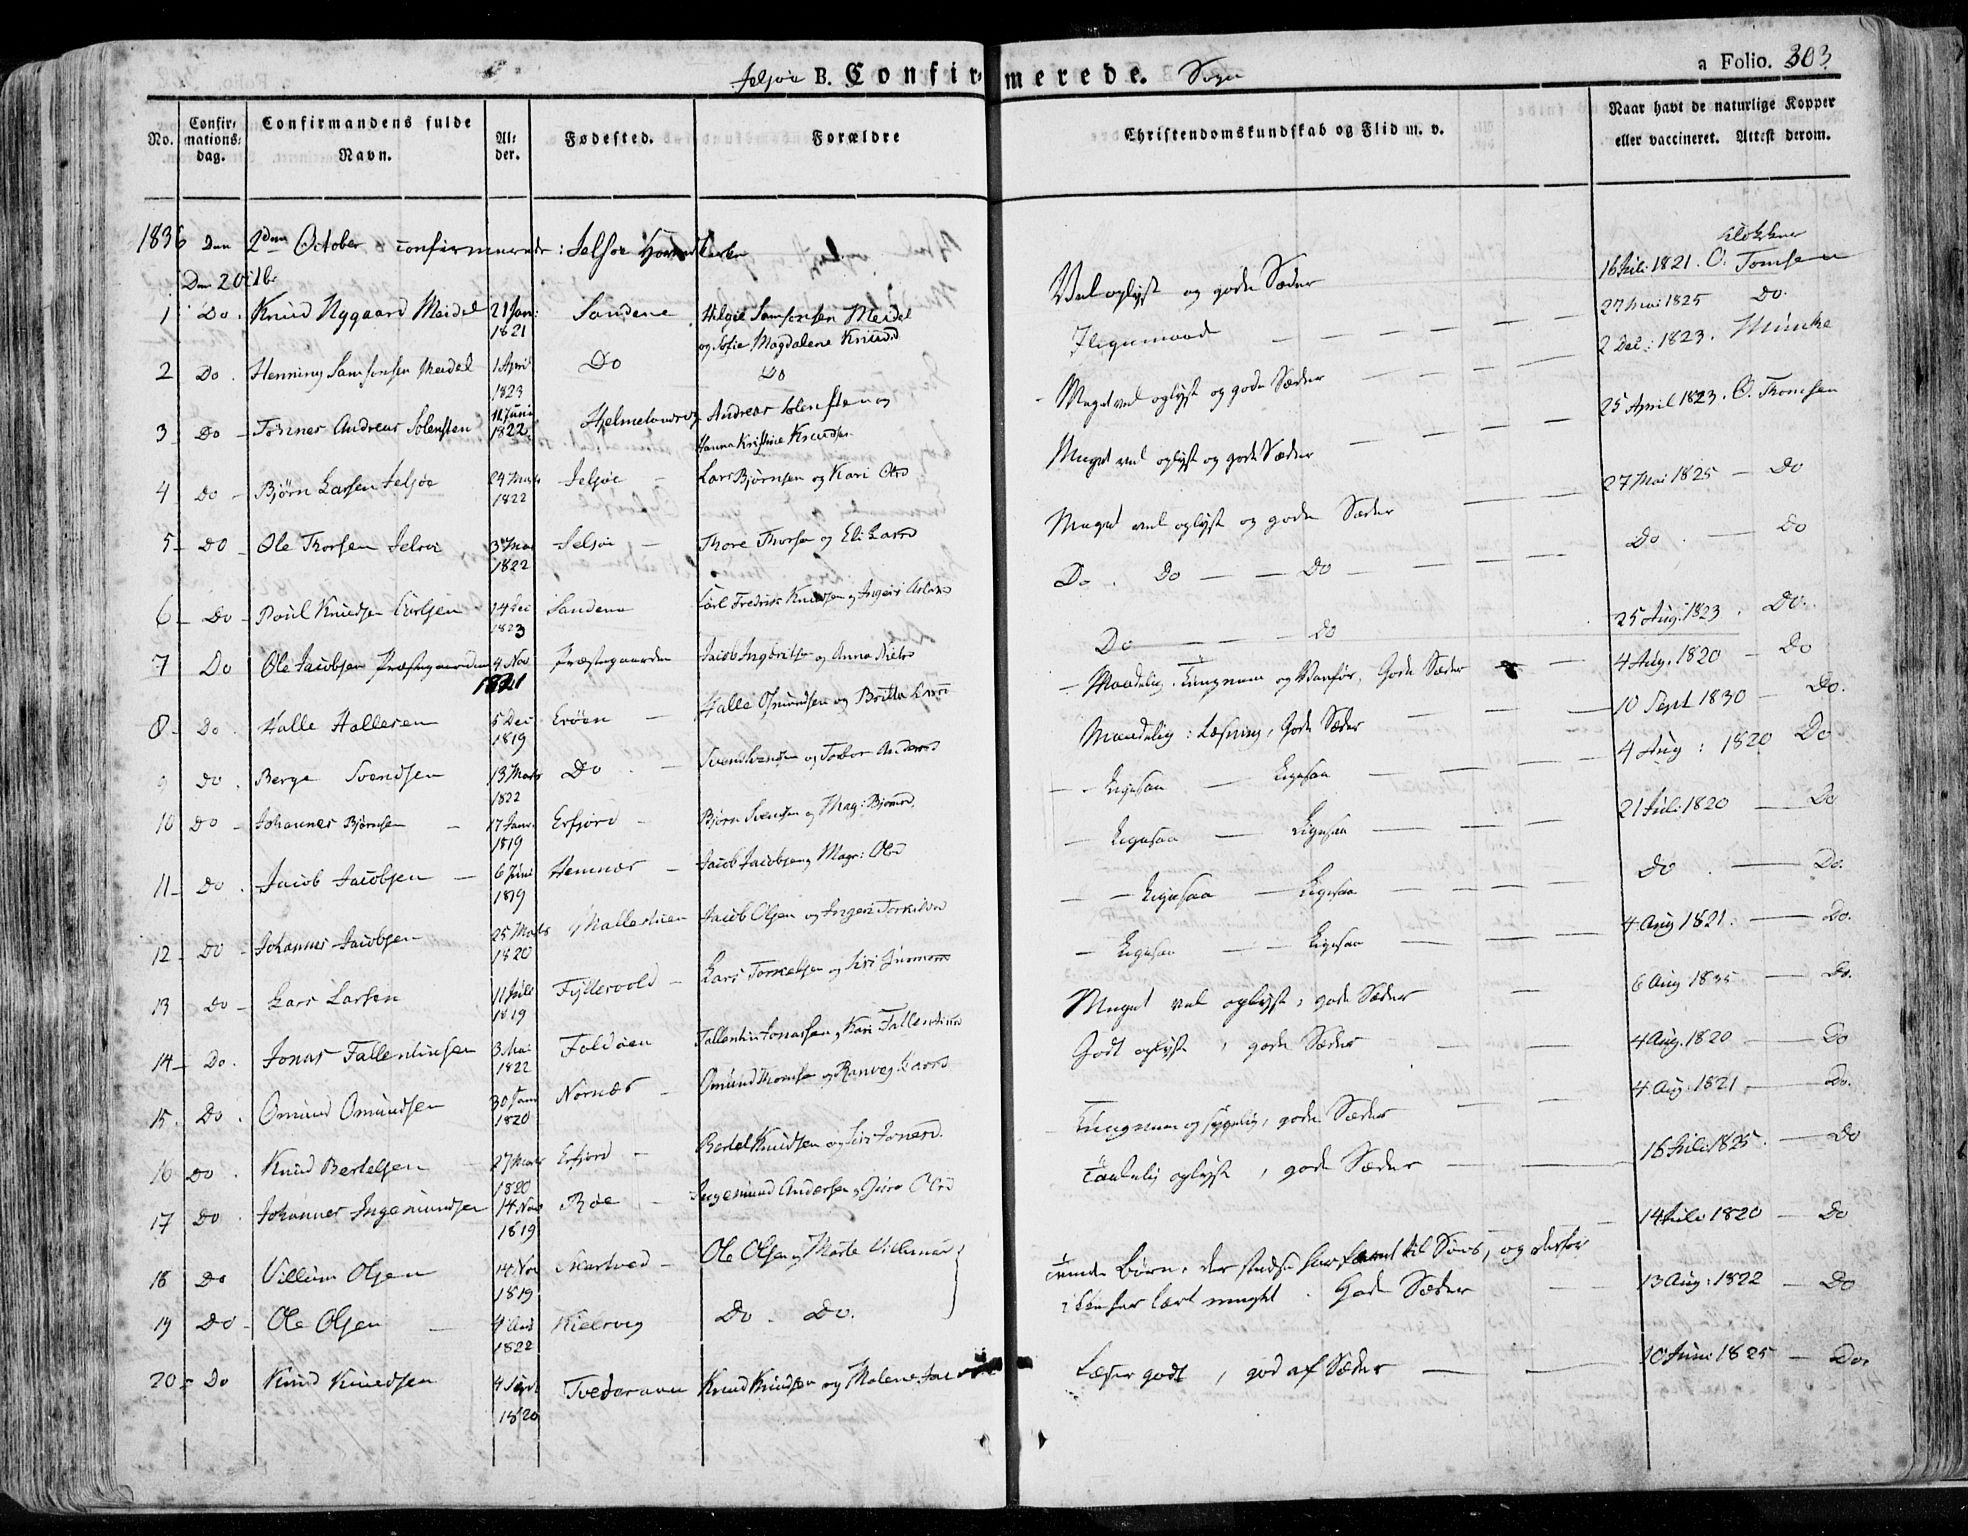 Jelsøe B. Confirmerede. Sogn
a Folio. 303.
No. Confirmations-dag. Confirmandens fulde Navn. Alder. Fødested. Forældre Christendomskundskab og Flid m. v. Naar havt de naturlige Kopper eller vaccineret. Attest derom.
1836 Den 2den October confirmerede i Jelsøe Hovedkirke
Den 2 Octbr
1 Do. Knud Nygaard Meidel 21 Jan: 1821 Sandene Helgie Samsonsen Meidel og Sofie Magdalene Knudsd Vel oplyst og gode Sæder 16 Juli 1821. O. Tomsen Klokker
2 Do. Henning Samsonsen Meidel 1 April 1823 Do Do Ligemaad 27 Mai 1825 Do.
3 Do Tønnes Andreas Solensten 11 Juni 1822 Hjelmelandsvg Andreas Solensten og Hanna Kristine Knudsen Meget vel oplyst og gode Sæder 2 Dec: 1823. Müncke
4 Do Bjørn Larsen Jelsøe 24 Mats 1822 Jelsøe Lars Bjørnsen og Kari Olsd Meget vel oplyst og gode Sæder 25 April 1823. O. Thomsen
5 Do Ole Thorsen Jelsøe 3 Mai 1822 Jelsøe Thore Thorsen og Eli Larsd Meget vel oplyst og gode Sæder 27 Mai 1825 Do
6 Do Poul Knudsen Carlsen 14 Dec 1823 Sandene Carl Fredrik Knudsen og Ingeri Do. Do Do Do. Do
7 Do Ole Jacobsen Præstegaarden 4 Nov 1821 Præstegaarden Jacob Ingbritsen og Anna Nielsd Do Do 25 Aug. 1823. Do.
8 Do. Halle Hallesen 5 Dec 1819 Erøen Halle Osmundsen og Britta Larsd Maadelig. Tungnem og Vanfør, Gode Sæder 4 Aug. 1820 Do
9 Do. Berge Svendsen 13 Mats 1822 Do. Svend Svendsen og Andersd Maadelig i Læsning, Gode Sæder 10 Sept 1830 Do.
10 Do Johannes Bjørnsen 17 Janr. 1819 Erfjord Bjørn Svendsen og Mag: Bjørnsd. Ligesaa Ligesaa 4 Aug: 1820 Do
11 Do. Jacob Jacobsen 6 Juni 1819 Hemnes Jacob Jacobsen og Magr: Olsd Ligesaa Ligesaa 21 Juli 1820 Do
12 Do Johannes Jacobsen 25 Mats 1820 Mallestuen Jacob Olsen og Ingeri Torkelsd Ligesaa Ligesaa Do. Do.
13 Do Lars Larsen 11 Juli 1819 Fyllevold Lars Torkelsen og Siri Ligesaa Ligesaa 4 Aug 1821. Do.
14 Do. Jonas Tallentinsen 3 Mai 1822 Foldøen Tallentin Jonassen og Kari Tallentinsd Meget vel oplyst, gode Sæder 6 Aug 1835 Do.
15. Do. Omund Omundsen 30 Janr 1820 Nornæs Omund Thomsen og Ranveg Larsd Godt oplyst, gode Sæder 4 Aug. 1820 Do
16 Do. Knud Bertelsen 27 Mats 1820 Erfjord Bertel Knudsen og Siri Jonesd. Tungnem og sygelig, gode Sæder 4 Aug. 1821. Do.
17 Do. Johannes Ingemundsen 14 Nov 1819 Røe Ingemund Andersen og Olsd Taalelig oplyst, gode Sæder 16 Juli 1825. Do
18 Do Villum Olsen 14 Nov 1819 Skartved Ole Olsen og Marte Villumsd Børn, der stedse har til Søes, og derfor 14 Juli 1820 Do
19 Do Ole Olsen 1822 Kielsvig Do Do. ikke har lært meget. Gode Sæder 13 Aug: 1822 Do
20 Do Knud Knudsen 4 Sept 1820 Tvederaaen Knud Knudsen og Malene Læser godt, god af Sæder 10 Juni 1825 Do.